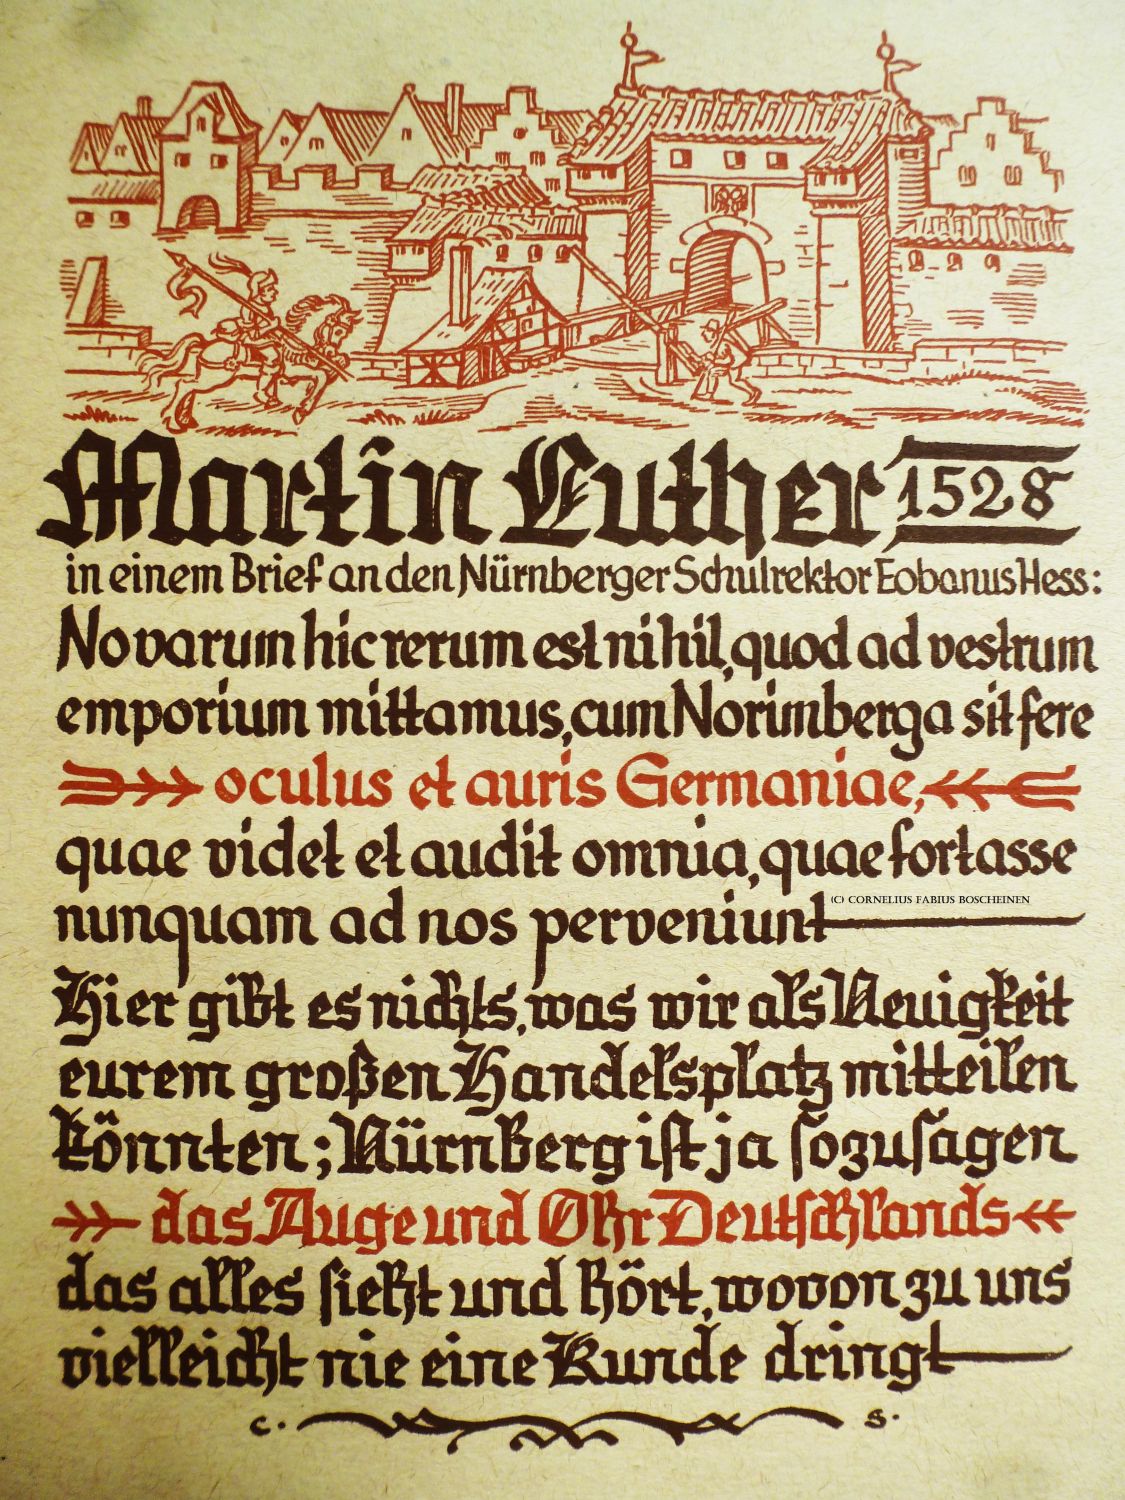 Martin Luther 1528
in einem Brief an den Nürnberger Schulrektor Eobanus Hess:
Novarum hic rerum est nihil, quod ad vestrum
emporium mittamus, cum Norimberga sit fere
oculus et auris Germaniae,
quae videt et audit omnia, quae fortasse
nunquam ad nos perveniunt
(C) CORNELIUS FABIUS BOSCHEINEN
Hier gibt es nichts, was wir als Neuigkeit
eurem großen Handelsplatz mitteilen
könnten; Nürnberg ist ja sozusagen
das Auge und Ohr Deutschlands
das alles sieht und hört, wovon zu uns
vielleicht nie eine Kunde dringt
C. S.